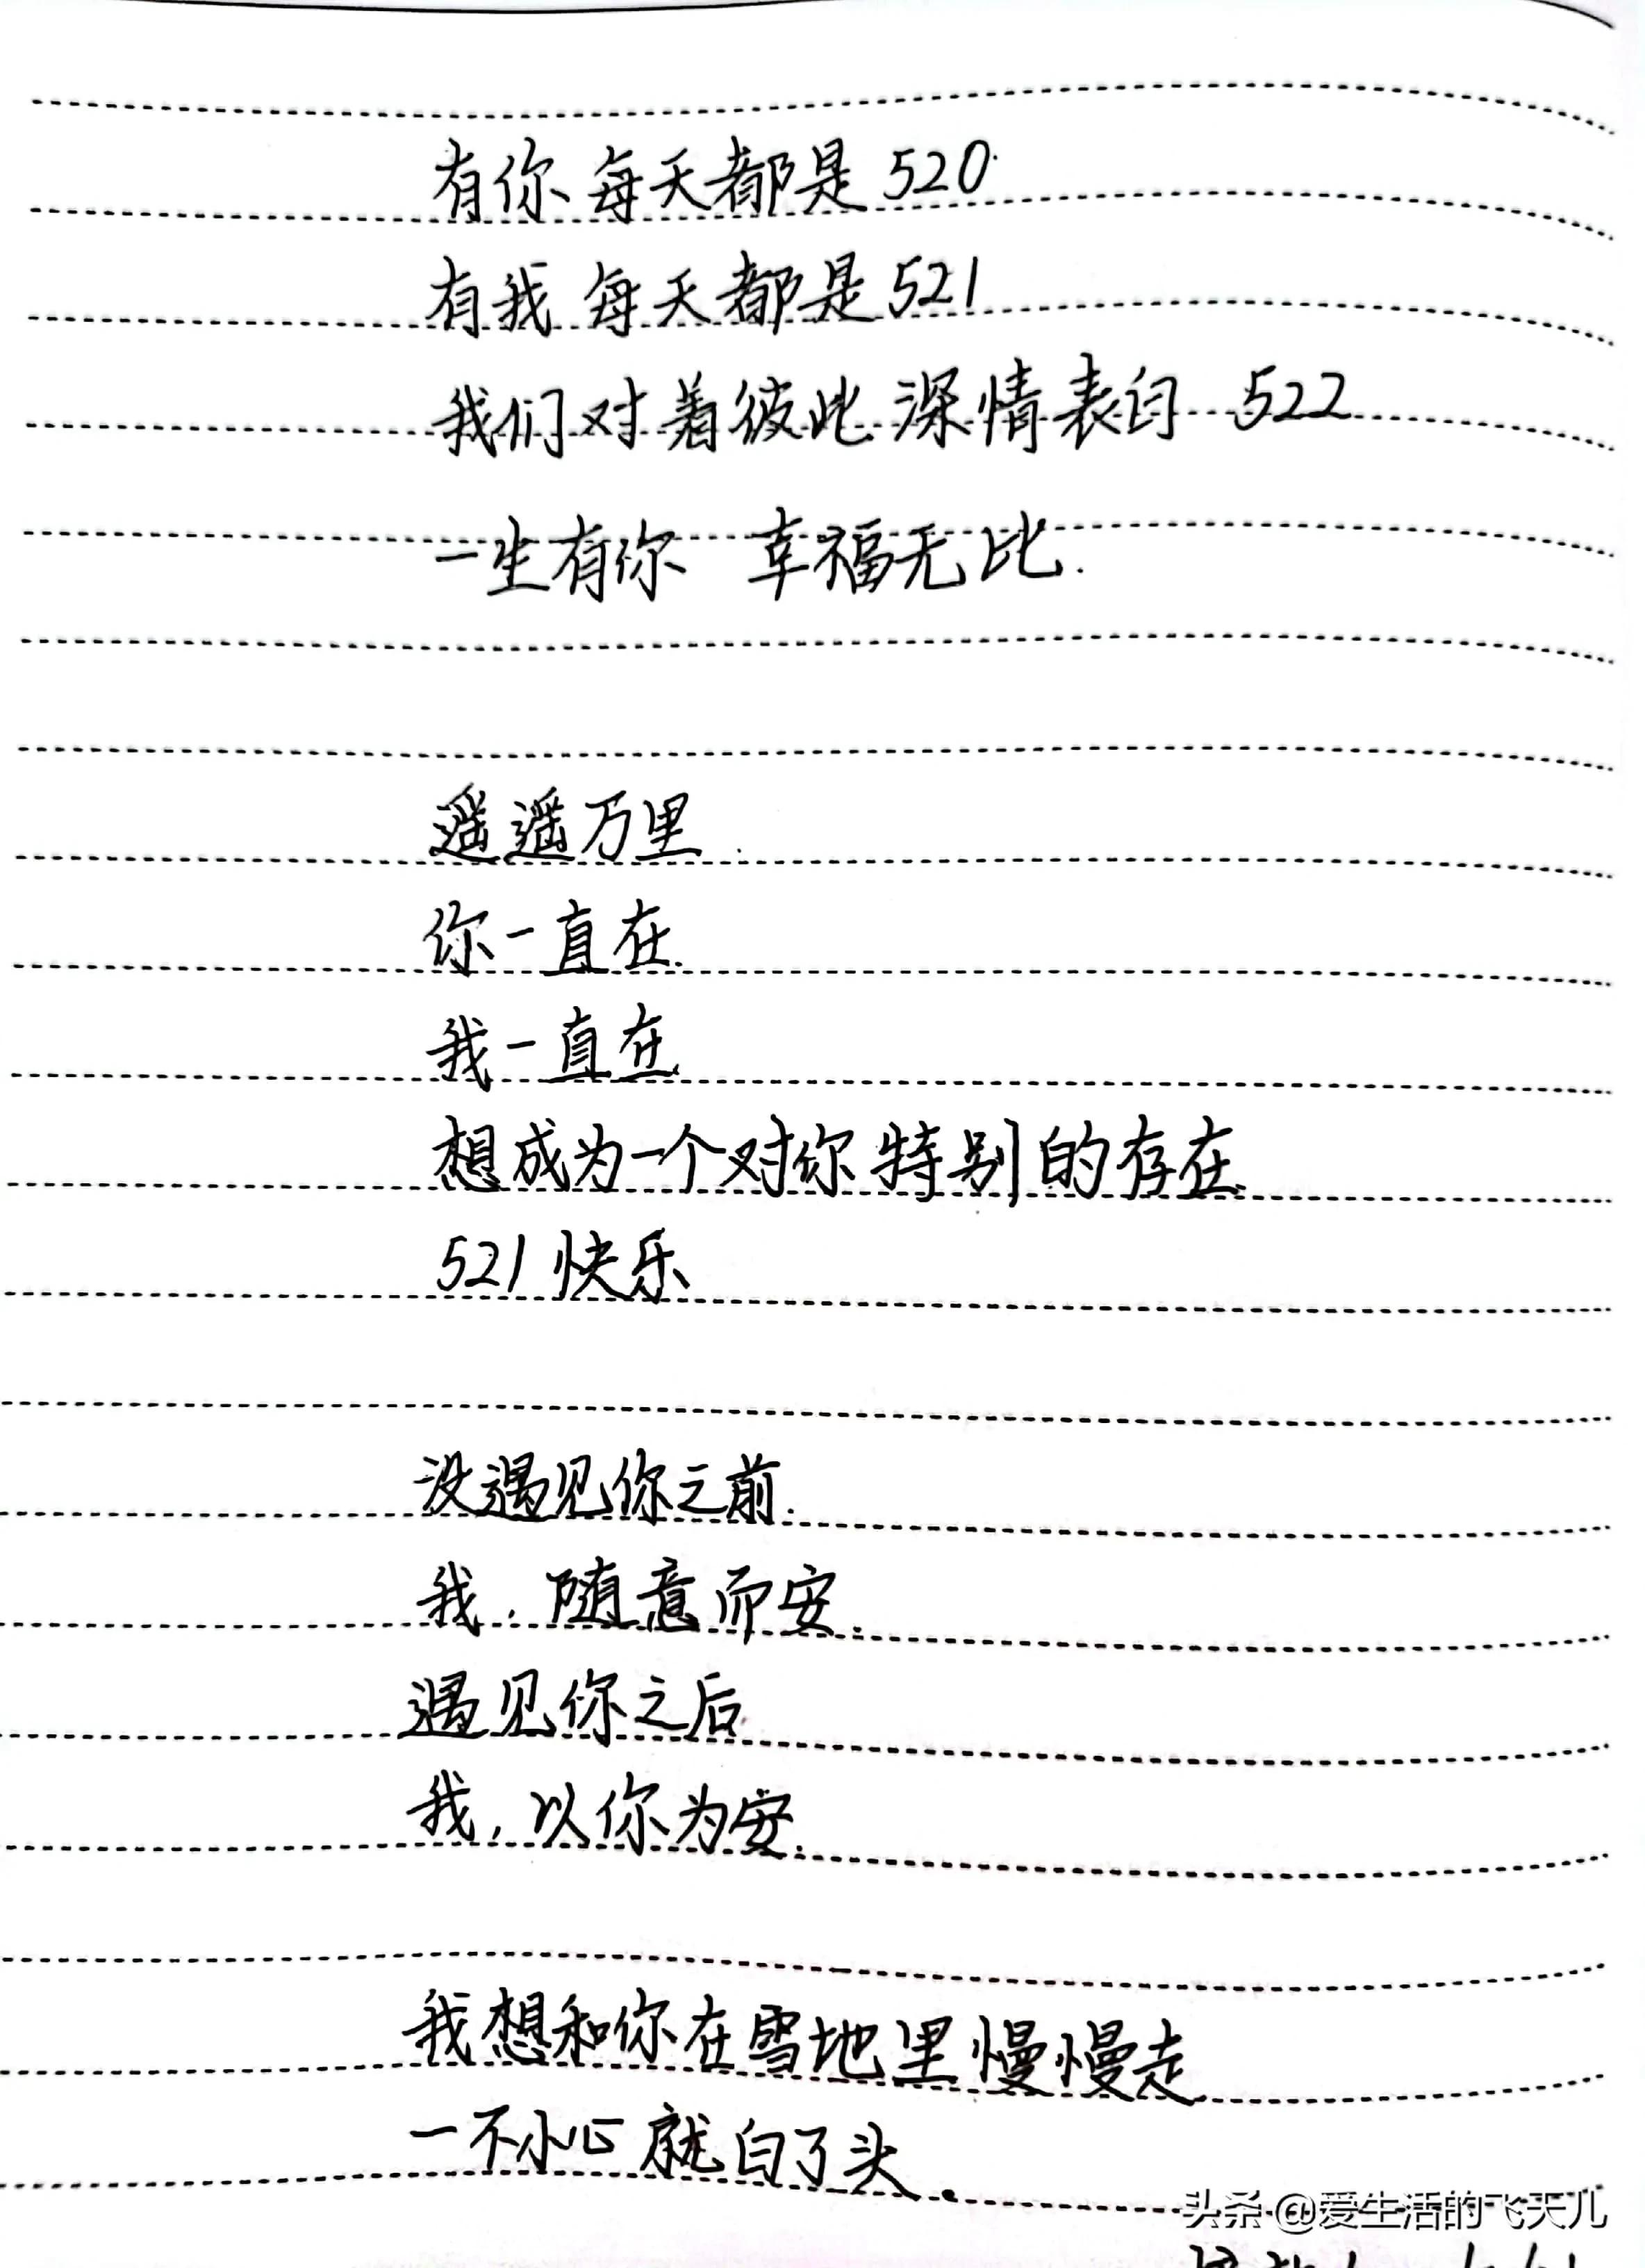 有你 每天都是 520
有我 每天都是 521
我们对着彼此 深情表白 522
一生有你 幸福无比.
遥遥万里
你一直在.
我一直在
想成为一个对你特别的存在
521 快乐
没遇见你之前.
我,随意而安.
遇见你之后
我,以你为安.
我想和你在雪地里慢慢走
一不小心就白了头.
头条 @爱生活的飞天儿